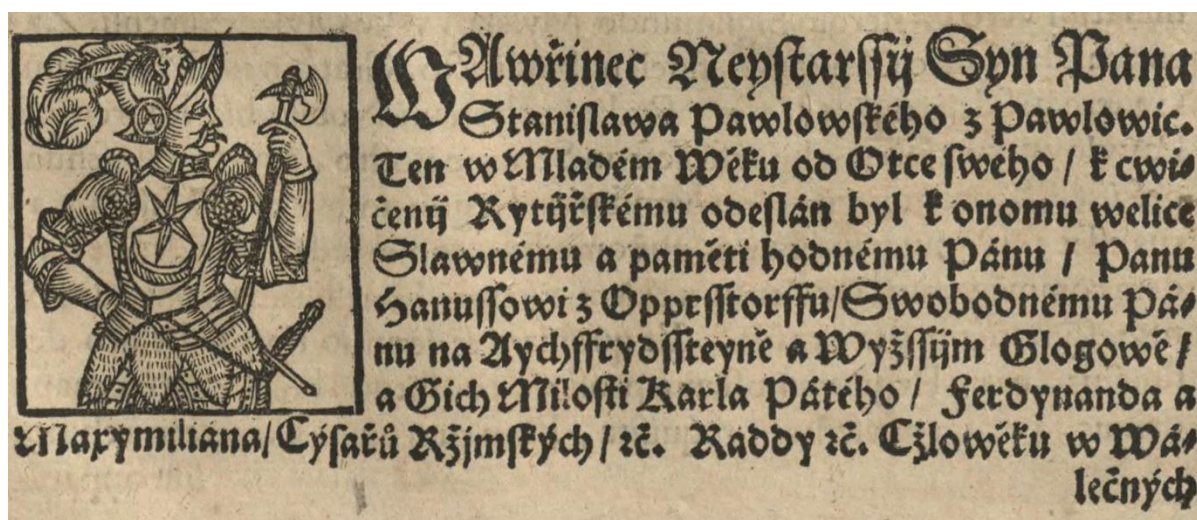 WAwřinec Neystarssij Syn Pana
Stanislawa Pawlowského z Pawlowic.
Ten w Mladém Wěku od Otce swého / k cwi-
čenij Rytijřskému odeslán byl k onomu welice
Slawnému a paměti hodnému Pánu / Panu
Hanussowi z Opprsstorffu/Swobodnému Pá-
nu na Aychffrydssteyně a Wyžssijm Glogowě /
a Gich Milosti Karla Pátého / Ferdynanda a
Maxymiliána/Cýsařů Ržjmských / ⁊č. Raddy ⁊č. Cžlowěku w Wá-
lečných